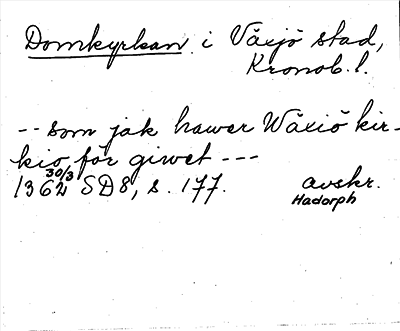 Domkyrkan i Växjö stad,
Kronob. l.
-- som jak hawer Wäxiö kir-
kio för giwet ---
1362 30/3 SD8, s. 177. avskr.
Hadorph